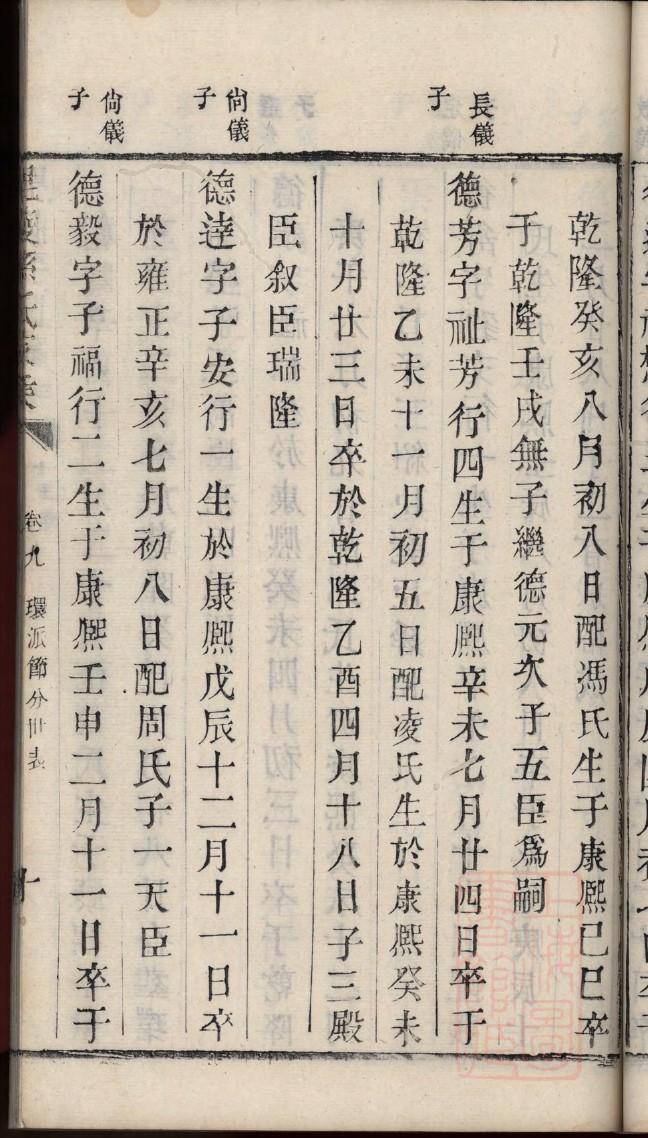 乾隆癸亥八月初八日配馮氏生于康熈己巳卒
于乾隆壬戌無子繼德元次子五臣爲嗣
長儀子
德芳字祉芳行四生于康熈辛未七月廿四日卒于
乾隆乙未十一月初五日配凌氏生於康熈癸未
十月廿三日卒於乾隆乙酉四月十八日子三殿
臣叙臣瑞隆
尙儀子
德逹字子安行一生於康熈戊辰十二月十一日卒
於雍正辛亥七月初八日配周氏子一天臣
尙儀子
德毅字子福行二生于康熈壬申二月十一日卒于
卷九 環派節分世表 十